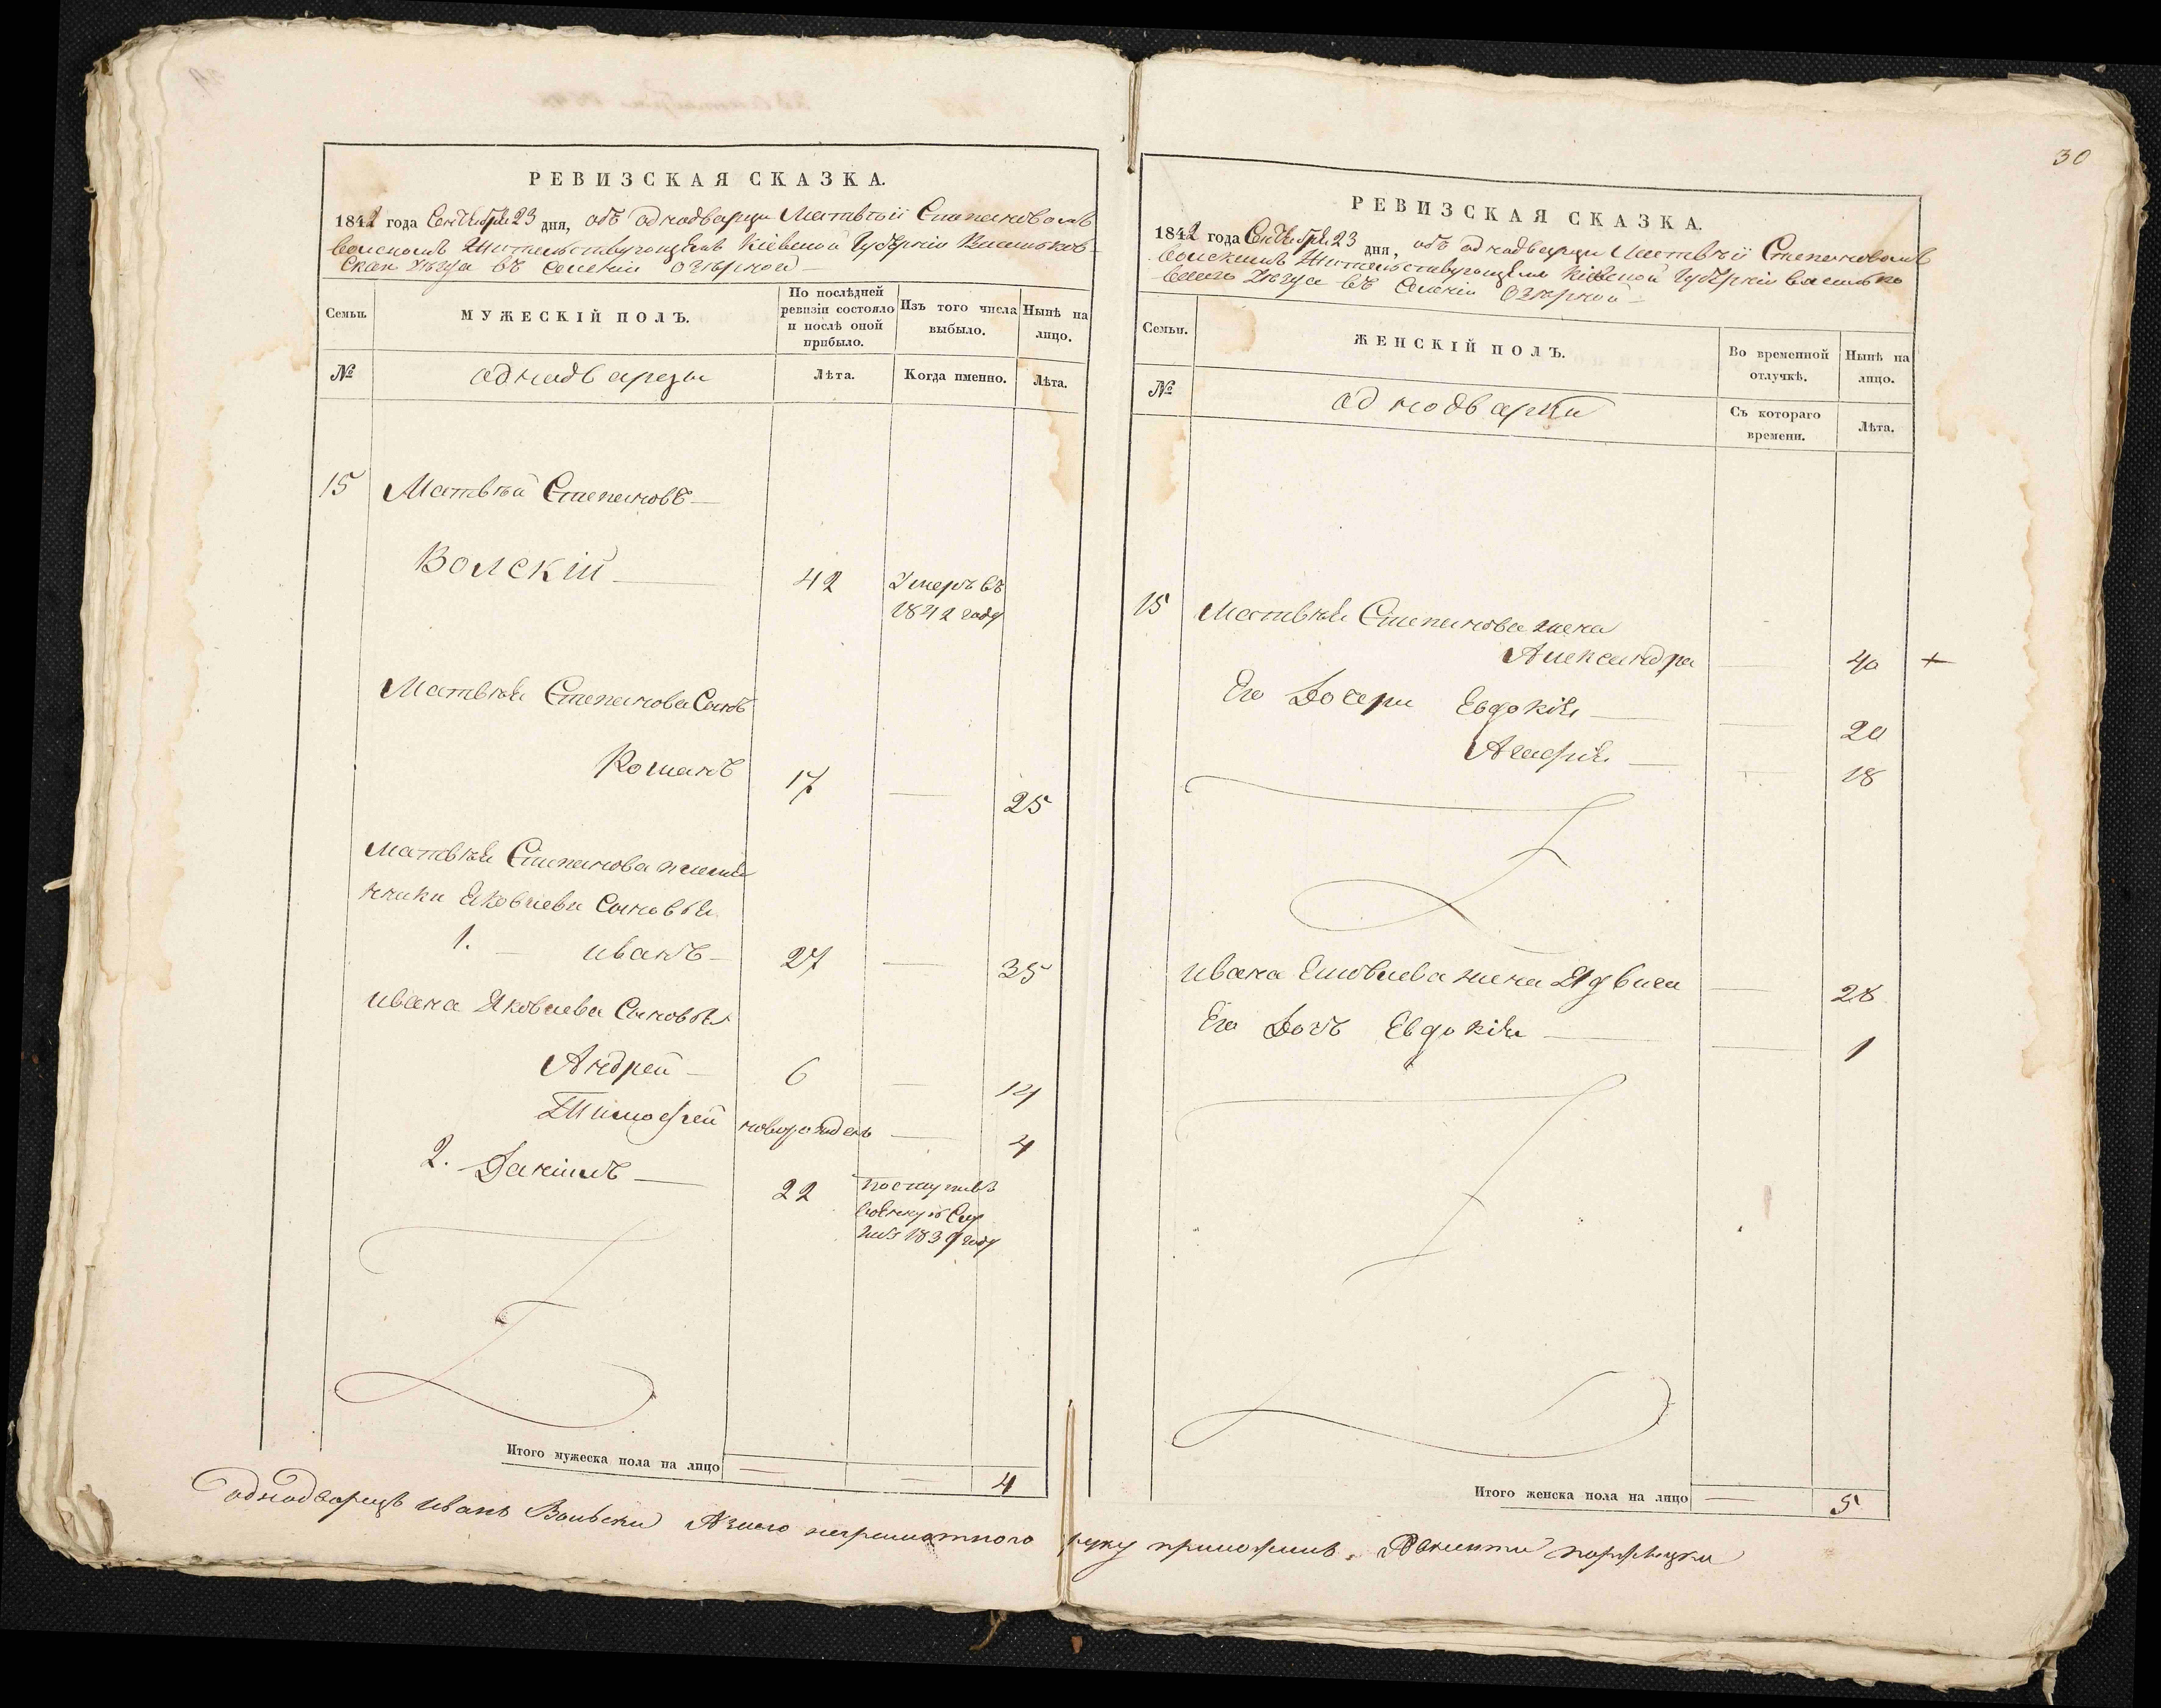 30
РЕВИЗСКАЯ СКАЗКА.
1842 года Сентября 23 дня, объ однодворци Матвѣи Степановомъ
Волскомъ Жительствующемъ Кіевской Губерніи Васильков-
скаго уезда въ селеніи Озѣрной
Семьи.
МУЖЕСКІЙ ПОЛЪ.
По послѣдней ревизіи состояло и послѣ оной прибыло.
Изъ того числа выбыло.
Нынѣ на лицо.
№
однодворцы
Лѣта.
Когда именно.
Лѣта.
15 Матвѣй Степановъ
Волскій 42 Умеръ въ
1842 году
Матвѣя Степанова Сынъ
Романъ 17 — 25
Матвѣя Степанова племя
нники Яковлева Сыновья
1. Иванъ 27 — 35
Ивана Яковлева Сыновья
Андрей 6 — 14
Тимофей новорожден — 4
2. Якимъ 22 поступилъ
1839 году
Итого мужеска пола на лицо — — 4
РЕВИЗСКАЯ СКАЗКА.
1842 года Сентября 23 дня, объ однодворци Матвѣи Степановомъ
Волскимъ Жительствующемъ Кіевской Губерніи Василько
вскаго уезда въ Селеніи Озѣрной
Семьи.
ЖЕНСКІЙ ПОЛЪ.
Во временной отлучкѣ.
Нынѣ на лицо.
№
однодворки
Съ котораго времени.
Лѣта.
15 Матвѣя Степанова жена
Александра — 40 +
Его Дочери Евдокія — 20
Агафия — 18
Ивана Яковлева жена Ядвига — 28
Его Дочь Евдокія — 1
Итого женска пола на лицо — 5
однодворецъ Иванъ Вольски А за него неграмотного руку приложилъ